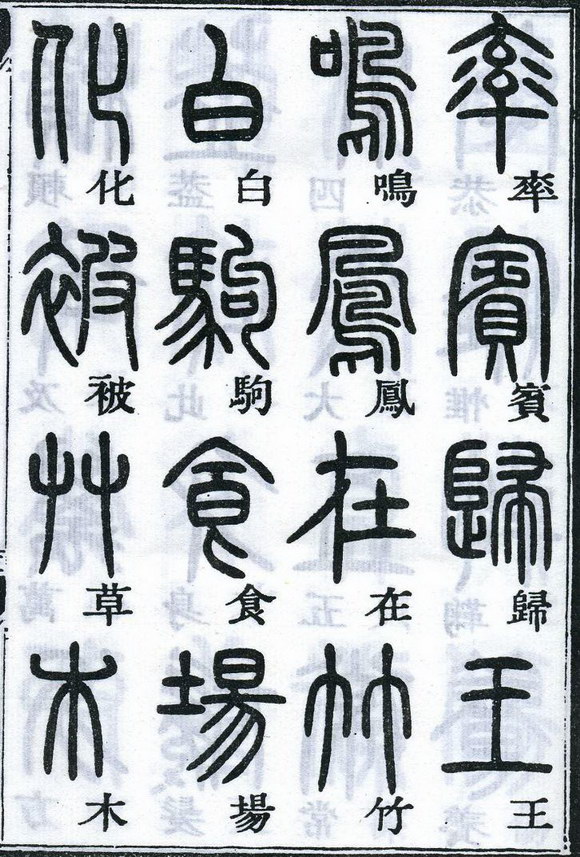 率賓歸王
率賓歸王
鳴鳳在竹
鳴鳳在竹
白駒食場
白駒食場
化被草木
化被草木